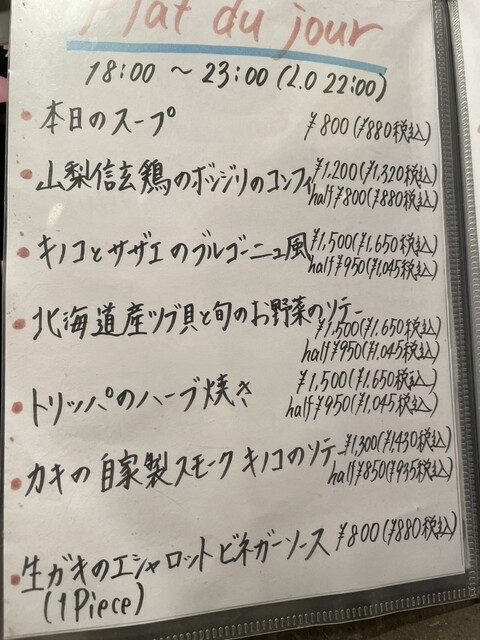 Plat du jour
18:00 ~ 23:00 (L.O 22:00)
・本日のスープ ¥800(¥880税込)
・山梨信玄鶏のボンジリのコンフィ ¥1,200(¥1,320税込)
half ¥800(¥880税込)
・キノコとサザエのブルゴーニュ風 ¥1,500(¥1,650税込)
half ¥950(¥1,045税込)
・北海道産ツブ貝と旬のお野菜のソテー
¥1,500(¥1,650税込)
half ¥950(¥1,045税込)
・トリッパのハーブ焼き ¥1,500(¥1,650税込)
half ¥950(¥1,045税込)
・カキの自家製スモーク キノコのソテー ¥1,300(¥1,430税込)
half ¥850(¥935税込)
・生ガキのエシャロットビネガーソース ¥800(¥880税込)
(1Piece)